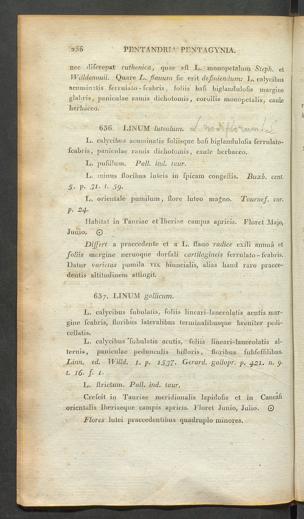 256 PENTANDRIA PENTAGYNIA.
nec discrepat ruthenica, quae est L. monopetalum Steph. et
Willdenowii. Quare L. flavum sic erit definiendum: L. calycibus
acuminatis serrulato-scabris, foliis basi biglandulosis margine
glabris, paniculae ramis dichotomis, corollis monopetalis, caule
herbaceo.
636. LINUM luteolum. L. nodiflorum L
L. calycibus acuminatis foliisque basi biglandulosis serrulato-
scabris, paniculae ramis dichotomis, caule herbaceo.
L. pusillum. Pall. ind. taur.
L. minus floribus luteis in spicam congestis. Buxb. cent.
5. p. 31. t. 59.
L. orientale pumilum, flore luteo magno. Tournef. cor.
p. 24.
Habitat in Tauriae et Iberiae campis apricis. Floret Majo,
Junio. ☉
Differt a praecedente et a L. flavo radice exili annuâ et
foliis margine nervoque dorsali cartilagineis serrulato-scabris.
Datur varietas pumila vix biuncialis, alias haud raro praece-
dentis altitudinem attingit.
637. LINUM gallicum.
L. calycibus subulatis, foliis lineari-lanceolatis acutis mar-
gine scabris, floribus lateralibus terminalibusque breviter pedi-
cellatis.
L. calycibus subulatis acutis, foliis lineari-lanceolatis al-
ternis, paniculae pedunculis bifloris, floribus subsessilibus.
Linn. ed. Willd. 1. p. 1537. Gerard. gallopr. p. 421. n. 9.
t. 16. f. 1.
L. strictum. Pall. ind. taur.
Crescit in Tauriae meridionalis lapidosis et in Caucasi
orientalis Iberiaeque campis apricis. Floret Junio, Julio. ☉
Flores lutei praecedentibus quadruplo minores.